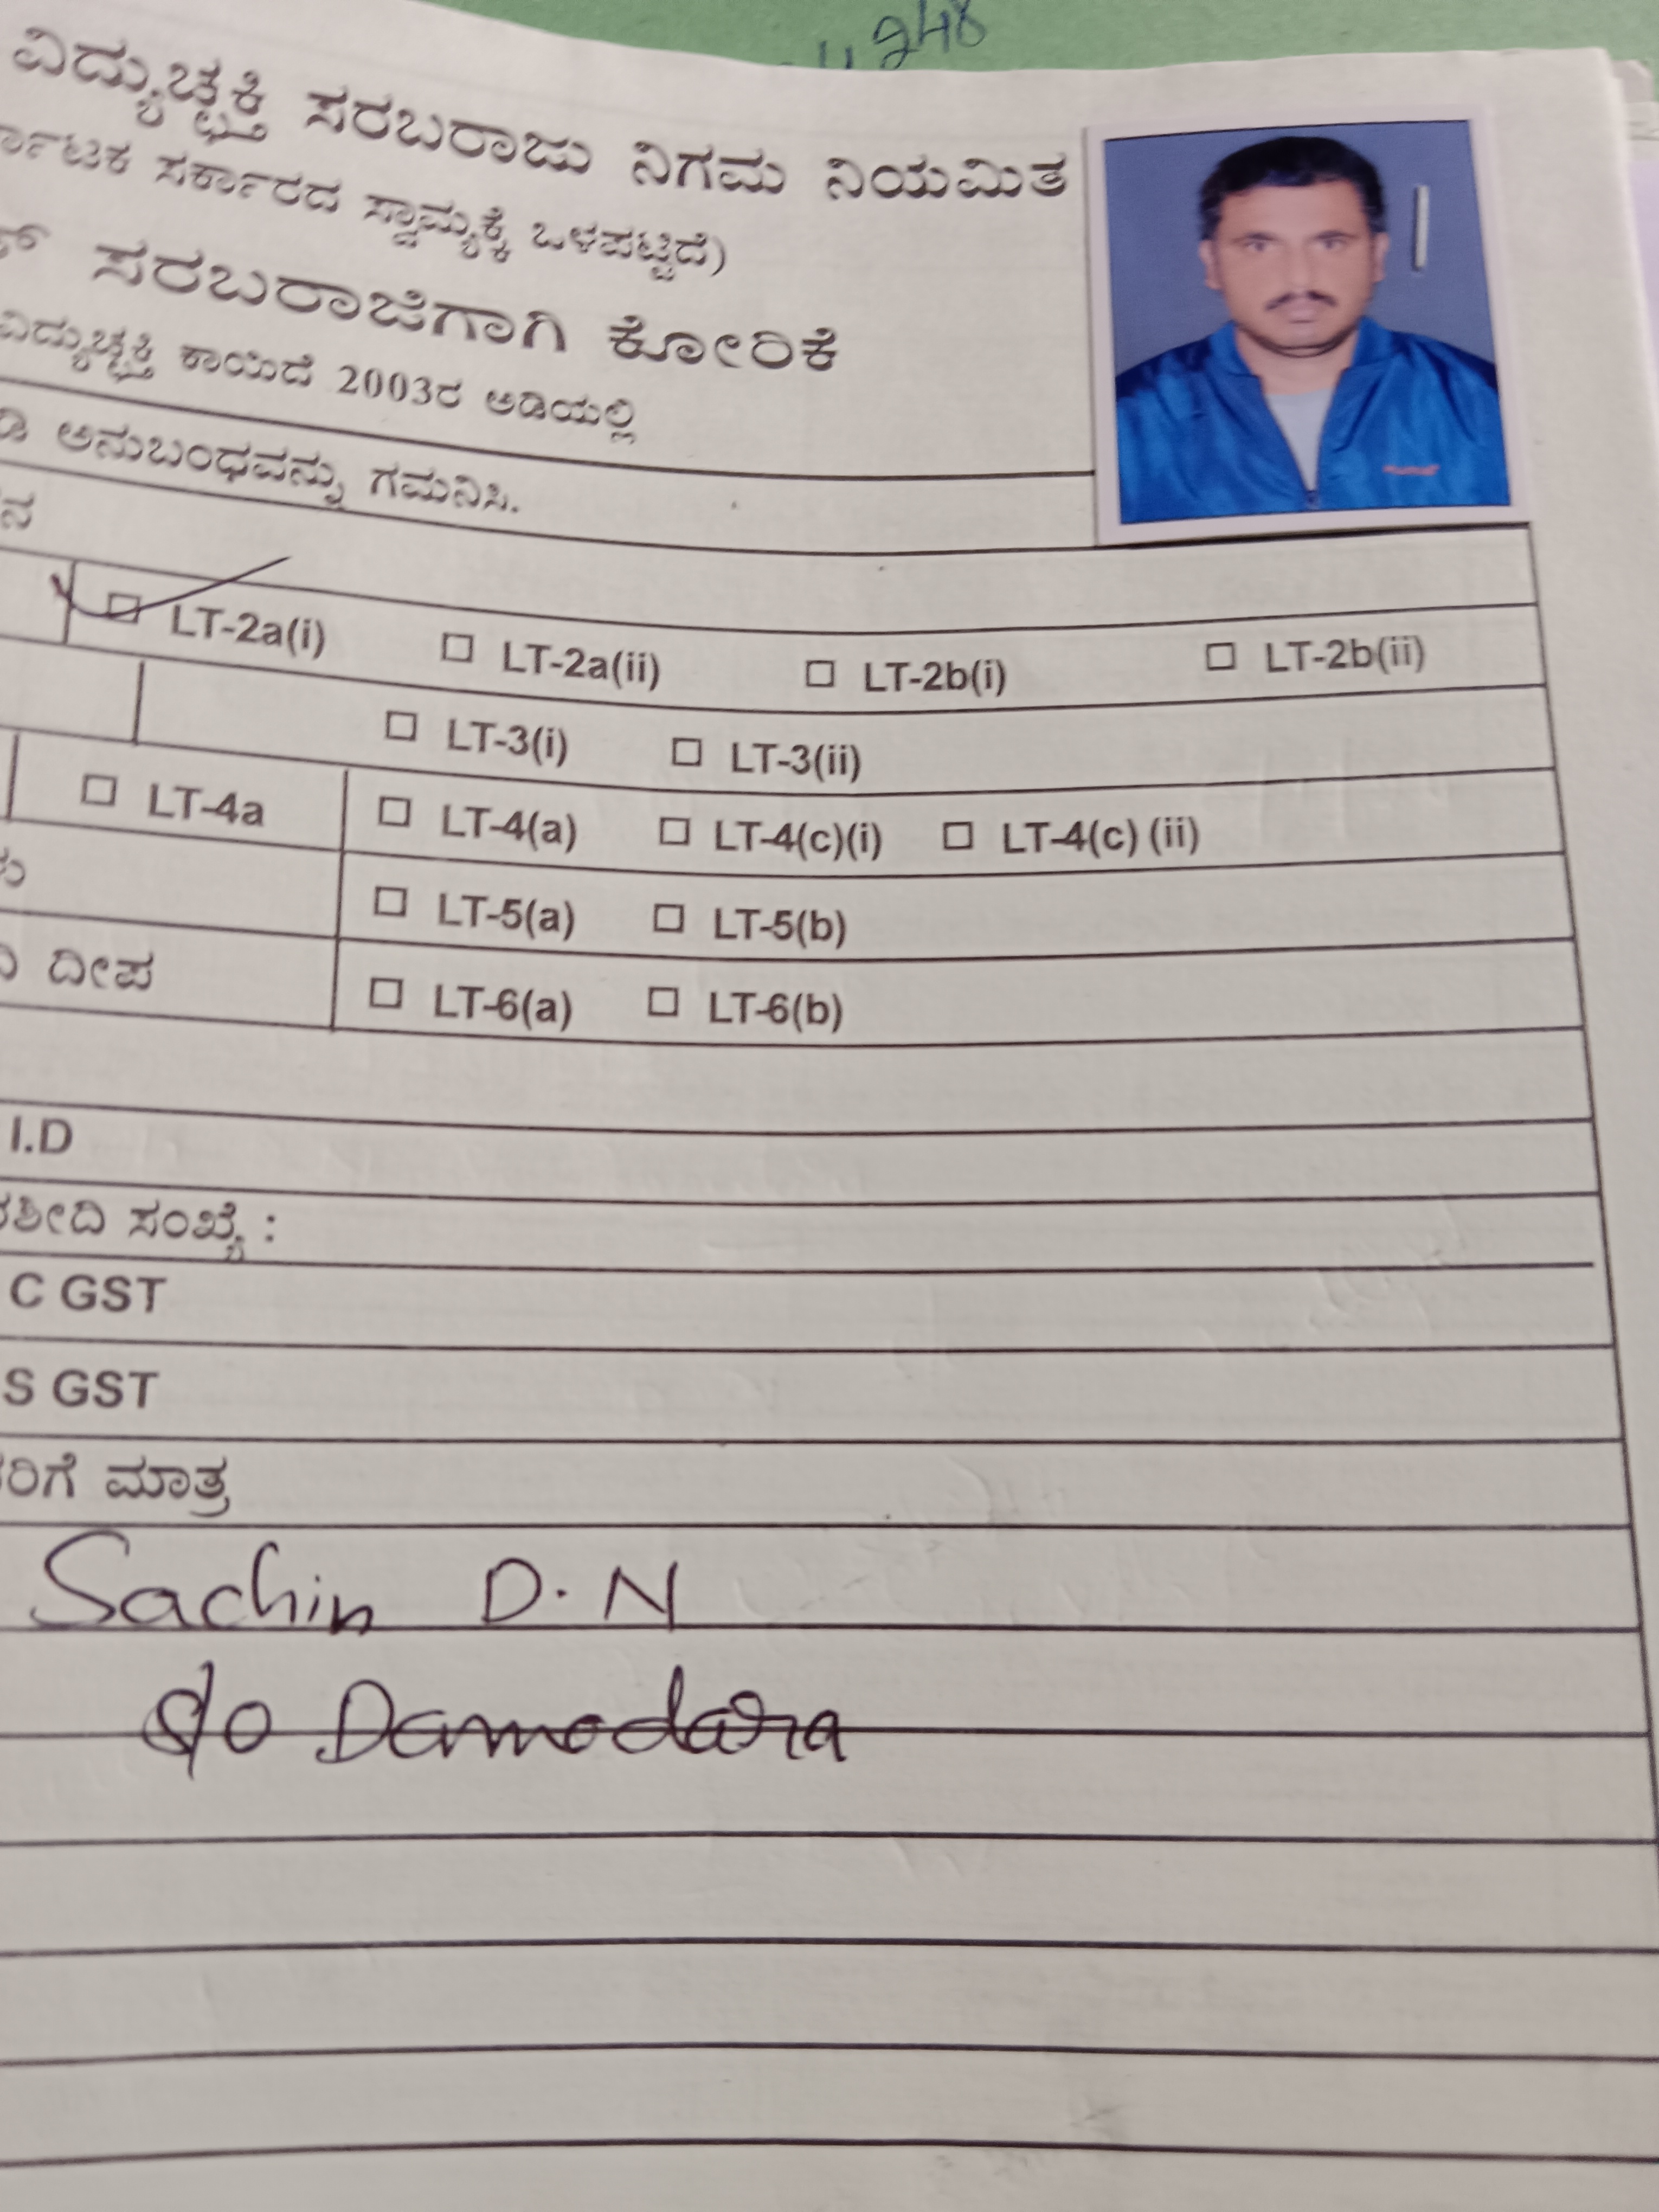 248
ವಿದ್ಯುಚ್ಛಕ್ತಿ ಸರಬರಾಜು ನಿಗಮ ನಿಯಮಿತ
ರ್ನಾಟಕ ಸರ್ಕಾರದ ಸ್ವಾಮ್ಯಕ್ಕೆ ಒಳಪಟ್ಟಿದೆ)
ಸರಬರಾಜಿಗಾಗಿ ಕೋರಿಕೆ
ವಿದ್ಯುಚ್ಛಕ್ತಿ ಕಾಯಿದೆ 2003ರ ಅಡಿಯಲ್ಲಿ
ಅನುಬಂಧವನ್ನು ಗಮನಿಸಿ.
☐ LT-2a(i) ☐ LT-2a(ii) ☐ LT-2b(i) ☐ LT-2b(ii)
☐ LT-3(i) ☐ LT-3(ii)
☐ LT-4a ☐ LT-4(a) ☐ LT-4(c)(i) ☐ LT-4(c) (ii)
☐ LT-5(a) ☐ LT-5(b)
ದೀಪ ☐ LT-6(a) ☐ LT-6(b)
I.D
ರಶೀದಿ ಸಂಖ್ಯೆ :
C GST
S GST
ರಿಗೆ ಮಾತ್ರ
Sachin D.N
S/o Damodara